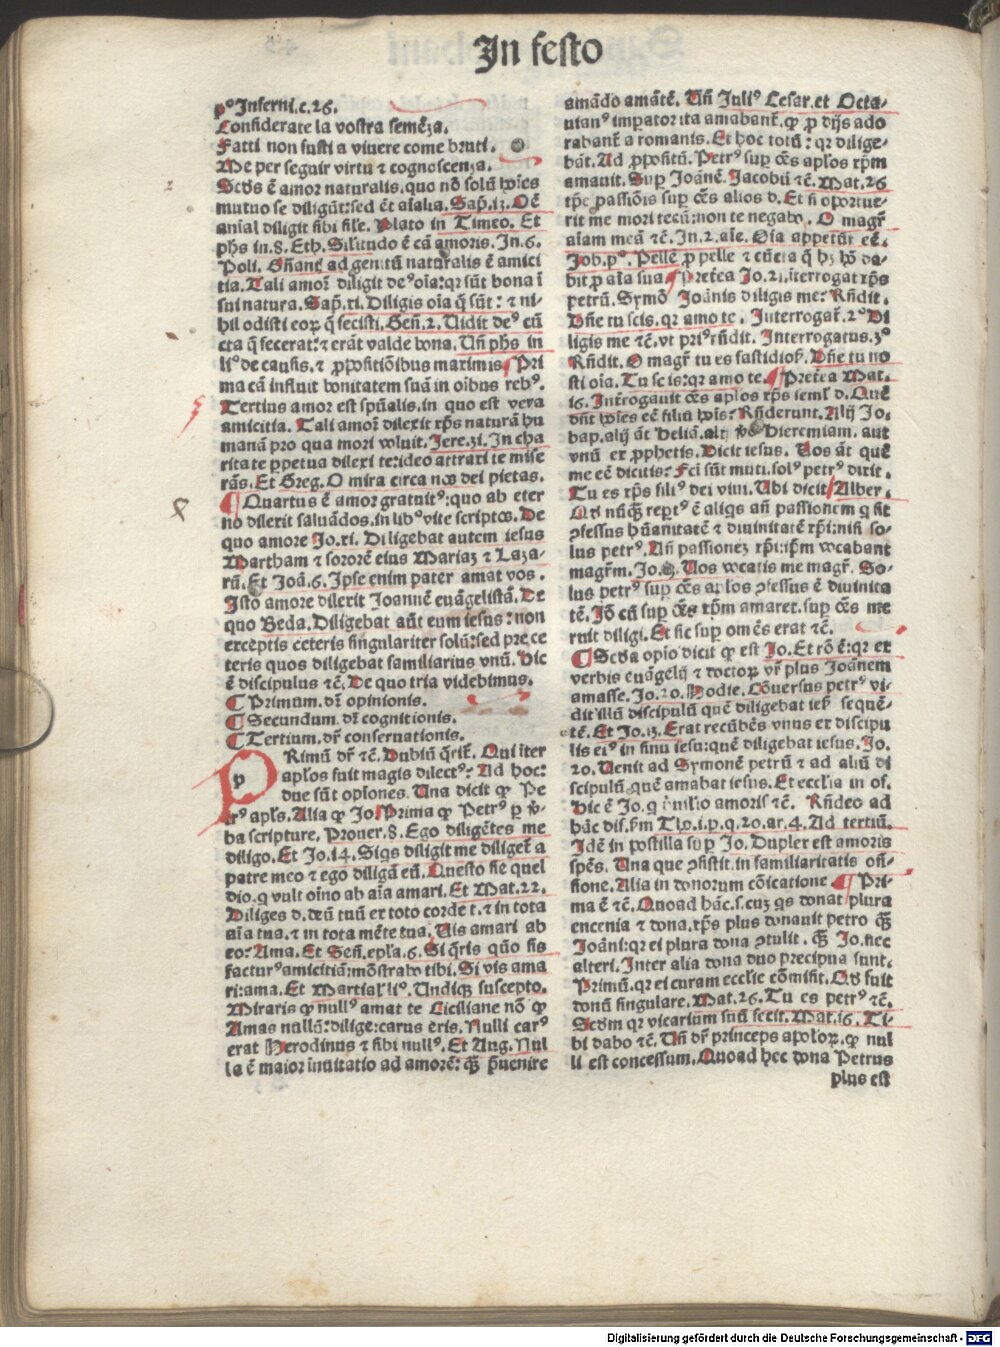 In festo
p⁰ Inferni.c.26.
Considerate la vostra semẽza.
Fatti non fusti a viuere come bruti.
Me per seguir virtu ⁊ cognoscenza.
Scd̃s ẽ amor naturalis.quo nõ solũ hoĩes
mutuo se diligũt:sed ẽt aĩalia.Sap̃.13.Oẽ
anĩal diligit sibi sile.Plato in Timeo. Et
ph̃s in.8.Eth.Silitudo ẽ cã amoris.In.6.
Poli. ad genitũ naturalis ẽ amici
tia.Tali amor̃ diligit deꝰ oĩa:qr sũt bona ĩ
sui natura.Sap̃.xi.Diligis oĩa q̃ sũt: ⁊ ni-
hil odisti eoꝝ q̃ fecisti.Geñ.2.Uidit deꝰ cũ
cta q̃ fecerat:⁊ erãt valde bona.Uñ ph̃s in
liꝰ de causis.⁊ ꝓpositiõibus maximis Pri
ma cã influit bonitatem suã in oĩbus rebꝰ.
Tertius amor est spũalis.in quo est vera
amicitia. Tali amor̃ dilexit xp̃s naturã hu
manã pro qua mori voluit.Jere.31.In cha
ritate ꝑpetua dilexi te:ideo attraxi te mise
rãs.Et Greg.O mira circa nos dei pietas.
¶ Quartus ẽ amor gratuitꝰ:quo ab eter
no dilexit saluãdos.in libꝰ vite scriptos. De
quo amore Jo.xi. Diligebat autem iesus
Martham ⁊ sororẽ eius Mariaʒ ⁊ Laza-
rũ.Et Joã.6.Ipse enim pater amat vos.
Isto amore dilexit Joannẽ euãgelistã.De
quo Beda.Diligebat aũt eum iesus:non
exceptis ceteris singulariter solũ:sed pre ce
teris quos diligebat familiarius vnũ. Hic
ẽ discipulus ⁊c̃.De quo tria videbimus.
¶ Primum.dr̃ opinionis.
¶ Secundum.dr̃ cognitionis.
¶ Tertium.dr̃ conseruationis.
PRimũ dr̃ ⁊c̃.Dubiũ q̃rit̃. Qui ĩter
apl̃os fuit magis dilectꝰ? Ad hoc:
due sũt opĩones.Una dicit ꝙ Pe
trꝰ apl̃s.Alia ꝙ Jo. Prima ꝙ Petrꝰ ꝑ v̈-
ba scripture. Prouer.8. Ego diligẽtes me
diligo.Et Jo.14.Siqs diligit me diliget̃ a
patre meo ⁊ ego diligã eũ.Questo sie quel
dio.q vult oĩno ab aĩa amari.Et Mat.22.
Diliges d.deũ tuũ ex toto corde t.⁊ in tota
aĩa tua.⁊ in tota mẽte tua. Uis amari ab
eo?Ama. Et Señ.epl̃a.6.Si q̃ris quõ sis
facturꝰ amicitiã:mõstrabo tibi.Si vis ama
ri:ama. Et Martial̃ liꝰ. Undiqʒ suscepto.
Miraris ꝙ nullꝰ amat te Ciciliane nõ ꝙ
Amas nullũ:dilige:carus eris.Nulli carꝰ
erat Herodinus ⁊ sibi nullꝰ. Et Aug.Nul
la ẽ maior ĩnuitatio ad amorẽ: qʒ̃ p̃uenire
amãdo amãtẽ. Uñ Juliꝰ Cesar.et Octa-
uianꝰ impator̃ ita amabant̃.ꝙ ꝓ dijs ado
rabant̃ a romanis.Et hoc totũ: qr dilige-
bãt.Ad ꝓpositũ. Petrꝰ suꝑ oẽs apl̃os xp̃m
amauit. Suꝑ Joãnẽ.Jacobũ ⁊c̃. Mat.26
tp̃e passiõis suꝑ oẽs alios d. Et si oportue-
rit me mori tecũ:non te negabo. O magr̃
aĩam meã ⁊c̃.In.2.aĩe. Oĩa appetũt eẽ.
Job.p⁰. Pellẽ ꝓ pelle ⁊ cũcta q̃ hʒ hõ da-
bit ꝓ aĩa sua Preterea Jo.21.ĩterrogat xp̃s
petrũ.Symõ Joãnis diligis me? Rñdit.
Dñe tu scis.qr amo te. Interrogat̃.2⁰ Di
ligis me ⁊c̃.vt priꝰ rñdit. Interrogatus.3⁰
Rñdit. O magr̃ tu es fastidiosꝰ. Dñe tu no
sti oĩa. Tu scis:qr amo te. ¶ Preterea Mat.
16. Interrogauit oẽs apl̃os xp̃s semel d. Quẽ
dñt hoĩes eẽ filiũ hoĩs? Rñderunt.Alij Jo.
bap.alij aũt Heliã.alij v̈o Hieremiam. aut
vnũ ex ꝓphetis. Dicit iesus. Uos aũt quẽ
me eẽ dicitis? Fci sũt muti.solꝰ petrꝰ dixit.
Tu es xp̃s filiꝰ dei viui. Ubi dicit Alber.
Qd̃ nũqʒ repertꝰ ẽ aliqs añ passionem q sit
ꝯfessus hũanitatẽ ⁊ diuinitatẽ xp̃i:nisi so-
lus petrꝰ. Añ passioneʒ xp̃i:ip̃m vocabant
magr̃m. Jo. Uos vocatis me magr̃. So-
lus petrꝰ suꝑ oẽs apl̃os ꝯfessus ẽ diuinita
tẽ. Jõ cũ suꝑ oẽs xp̃m amaret.suꝑ oẽs me
ruit diligi.Et sic suꝑ omẽs erat ⁊c̃.
¶ Scd̃a opĩo dicit ꝙ est Jo.Et rõ ẽ:qr ex
verbis euãgelij ⁊ doctoꝝ vr̃ plus Joãnem
amasse.Jo.20.Hodie. Cõuersus petrꝰ vi-
dit illũ discipulũ quẽ diligebat iesꝰ sequẽ-
tẽ. Et Jo.13.Erat recũbẽs vnus ex discipu
lis eiꝰ in sinu iesu:quẽ diligebat iesus.Jo.
20. Uenit ad Symonẽ petrũ ⁊ ad aliũ di
scipulũ quẽ amabat iesus.Et ecclĩa in of.
Hic ẽ Jo.q ṗuilegio amoris ⁊c̃. Rñdeo ad
hãc dis.s̃m Tho.i.p.q.20.ar.4. Ad tertiũ.
Idẽ in postilla suꝑ Jo. Duplex est amoris
spẽs. Una que ꝯsistit.in familiaritatis oñ-
sione.Alia in donorum cõicatione ¶ Pri-
ma ẽ ⁊c̃.Quoad hãc.s.cuʒ qs donat plura
encenia ⁊ dona.xp̃s plus donauit petro qʒ̃
Joãni:qr ei plura dona ꝯtulit.qʒ̃ Jo.nec
alteri.Inter alia dona duo precipua sunt.
Primũ.qr ei curam ecclie cõmisit. Qd̃ fuit
donũ singulare. Mat.26.Tu es petrꝰ ⁊c̃.
Scd̃m qr vicarium suũ fecit.Mat.16.Ti-
bi dabo ⁊c̃. Uñ dr̃ princeps apl̃oꝝ.ꝙ nul
li est concessum. Quoad hec dona Petrus
plus est
Digitalisierung gefördert durch die Deutsche Forschungsgemeinschaft - DFG